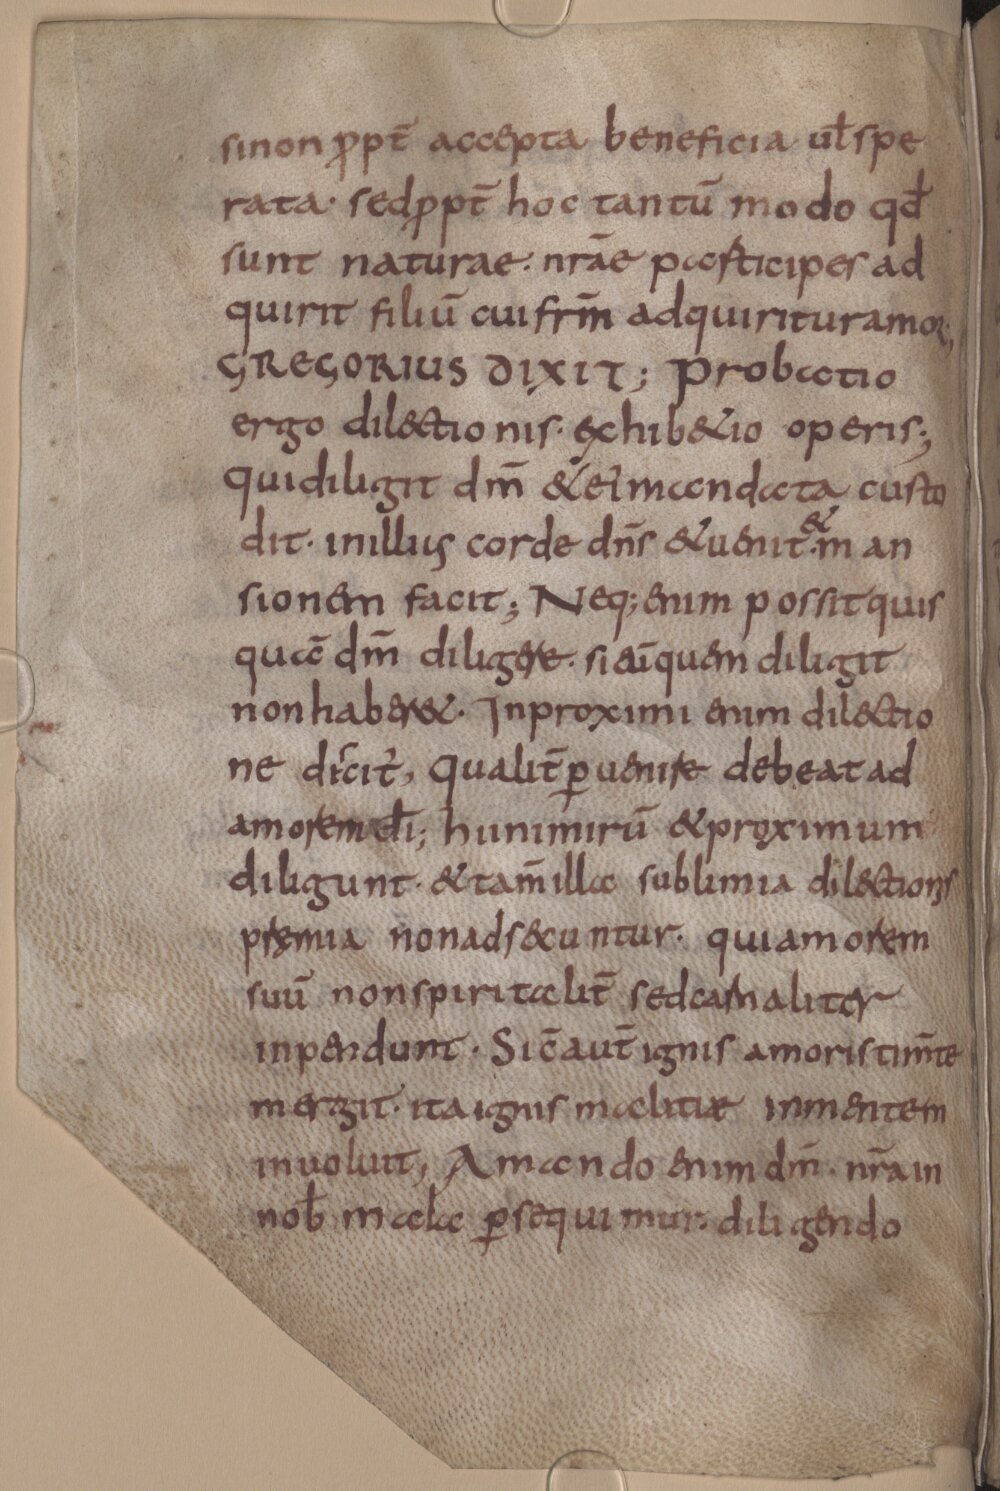 sinon ꝓpt̄ accepta beneficia ul̄ spe
rata· sed ꝓpt̄ hoc tantū modo qd̄
sunt naturae· nr̄ae participes ad
quirit filiū cui frm̄ adquiritur amor;
GREGORIUS DIXIT; Probatio
ergo dilectionis· exhibetio operis;
qui diligit dm̄ & ei mandata custo
dit· in illius corde dn̄s & uenit· & man
sionem facit; Neq; enim possit quis
quā dm̄ diligere· si eū quem diligit
non haberet· In proximi enim dilectio
ne dicit, qualit̄ ꝑuenire debeat ad
amorem dī; hi nimirū & proximum
diligunt· & tam̄ illa sublimia dilectionis
premia non adsecuntur· qui amorem
suū non spiritalit̄ sed carnaliter
inpendunt· Sic̄ aut̄ ignis amoris tim̄te
mergit· ita ignis malitiae in mentem
inuoluit, Amando enim dm̄· nr̄a in
nob̄ mala ꝑsequimur· diligendo